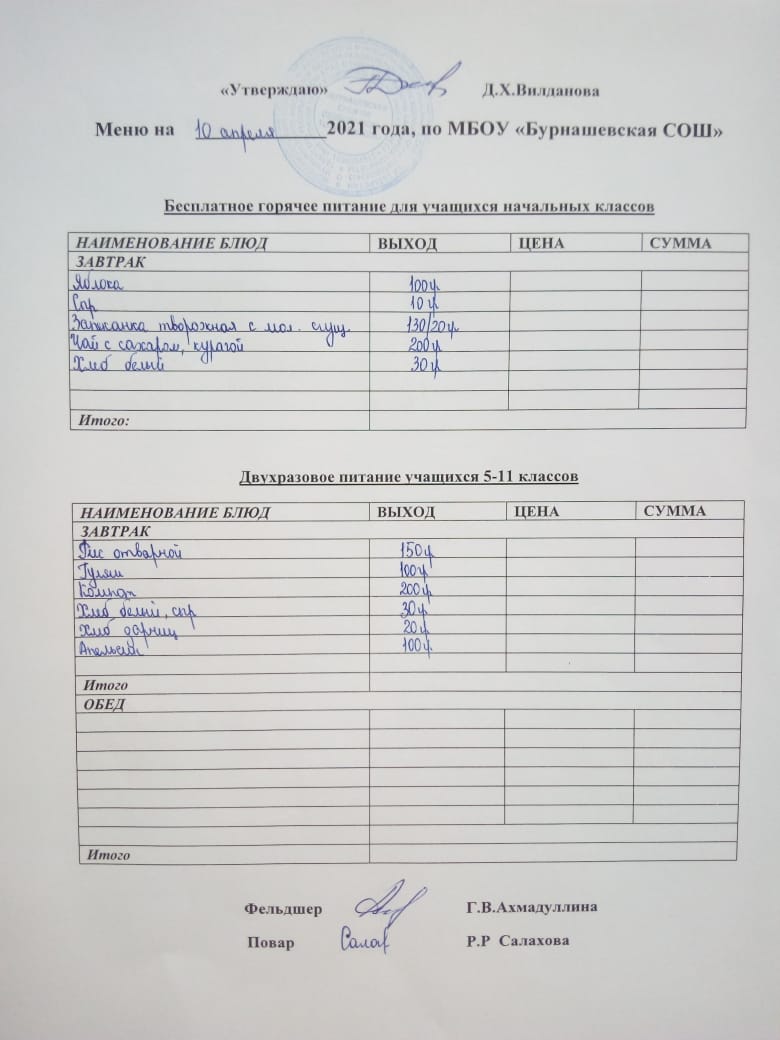 «Утверждаю» Д.Х.Вилданова
Меню на 10 апреля 2021 года, по МБОУ «Бурнашевская СОШ»
Бесплатное горячее питание для учащихся начальных классов
НАИМЕНОВАНИЕ БЛЮД ВЫХОД ЦЕНА СУММА
ЗАВТРАК
Яблока 100г
Сыр 10г
Запеканка творожная с мол. сгущ. 130/20г
Чай с сахаром, курагой 200г
Хлеб белый 30г
Итого:
Двухразовое питание учащихся 5-11 классов
НАИМЕНОВАНИЕ БЛЮД ВЫХОД ЦЕНА СУММА
ЗАВТРАК
Рис отварной 150г
Гуляш 100г
Компот 200г
Хлеб белый, сыр 30г
Хлеб дарниц 20г
Апельсин 100г
Итого
ОБЕД
Итого
Фельдшер Г.В.Ахмадуллина
Повар Салах Р.Р Салахова